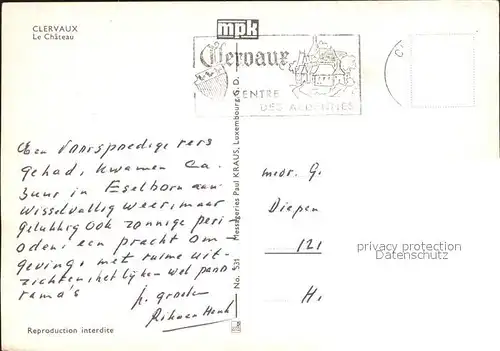 CLERVAUX
Le Château
mpk
Clervaux
CENTRE
DES ARDENNES
Een voorspoedige reis
gehad, kwamen ca.
3 uur in Eselborn aan.
Wisselvallig weer, maar
gelukkig ook zonnige peri
oden; een pracht om
geving, met ruime uit-
zichten, het lijken wel pano
rama's
h. groeten
Henk
Messageries Paul KRAUS, Luxembourg G. D.
No. 531
mevr. G.
Diepen
121
H.
privacy protection
Datenschutz
Reproduction interdite